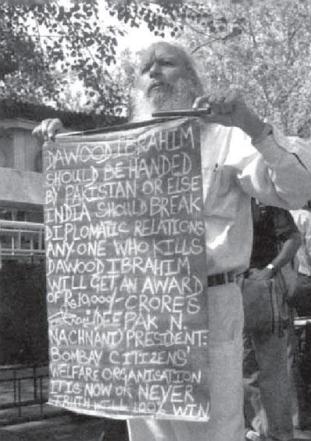 DAWOOD IBRAHIM
SHOULD BE HANDED
BY PAKISTAN OR ELSE
INDIA SHOULD BREAK
DIPLOMATIC RELATIONS
ANY ONE WHO KILLS
DAWOOD IBRAHIM
WILL GET AN AWARD
OF RS 10,000/- CRORES
DEEPAK N.
NACHNANI) PRESIDENT:
BOMBAY CITIZENS'
WELFARE ORGANISATION
IT IS NOW OR NEVER
TRUTH WILL 100% WIN